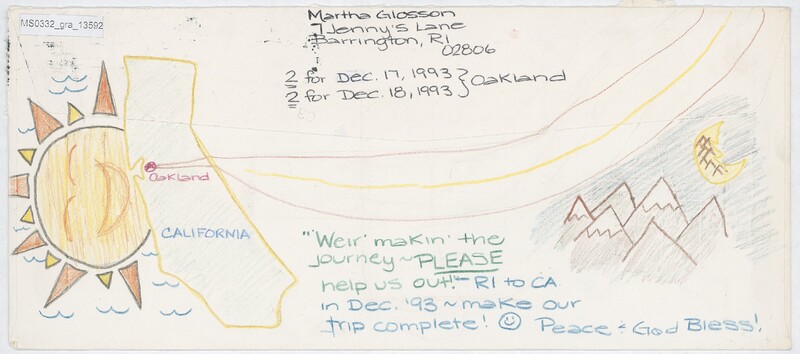 MS0332_gra_13592
Martha Glosson
7 Jenny's Lane
Barrington, RI
02806
2 for Dec. 17, 1993 } Oakland
2 for Dec. 18, 1993
Oakland
CALIFORNIA
"'Weir' makin' the
journey ~ PLEASE
help us out!" ~ RI to CA
in Dec. '93 ~ make our
trip complete! ☺ Peace & God Bless!